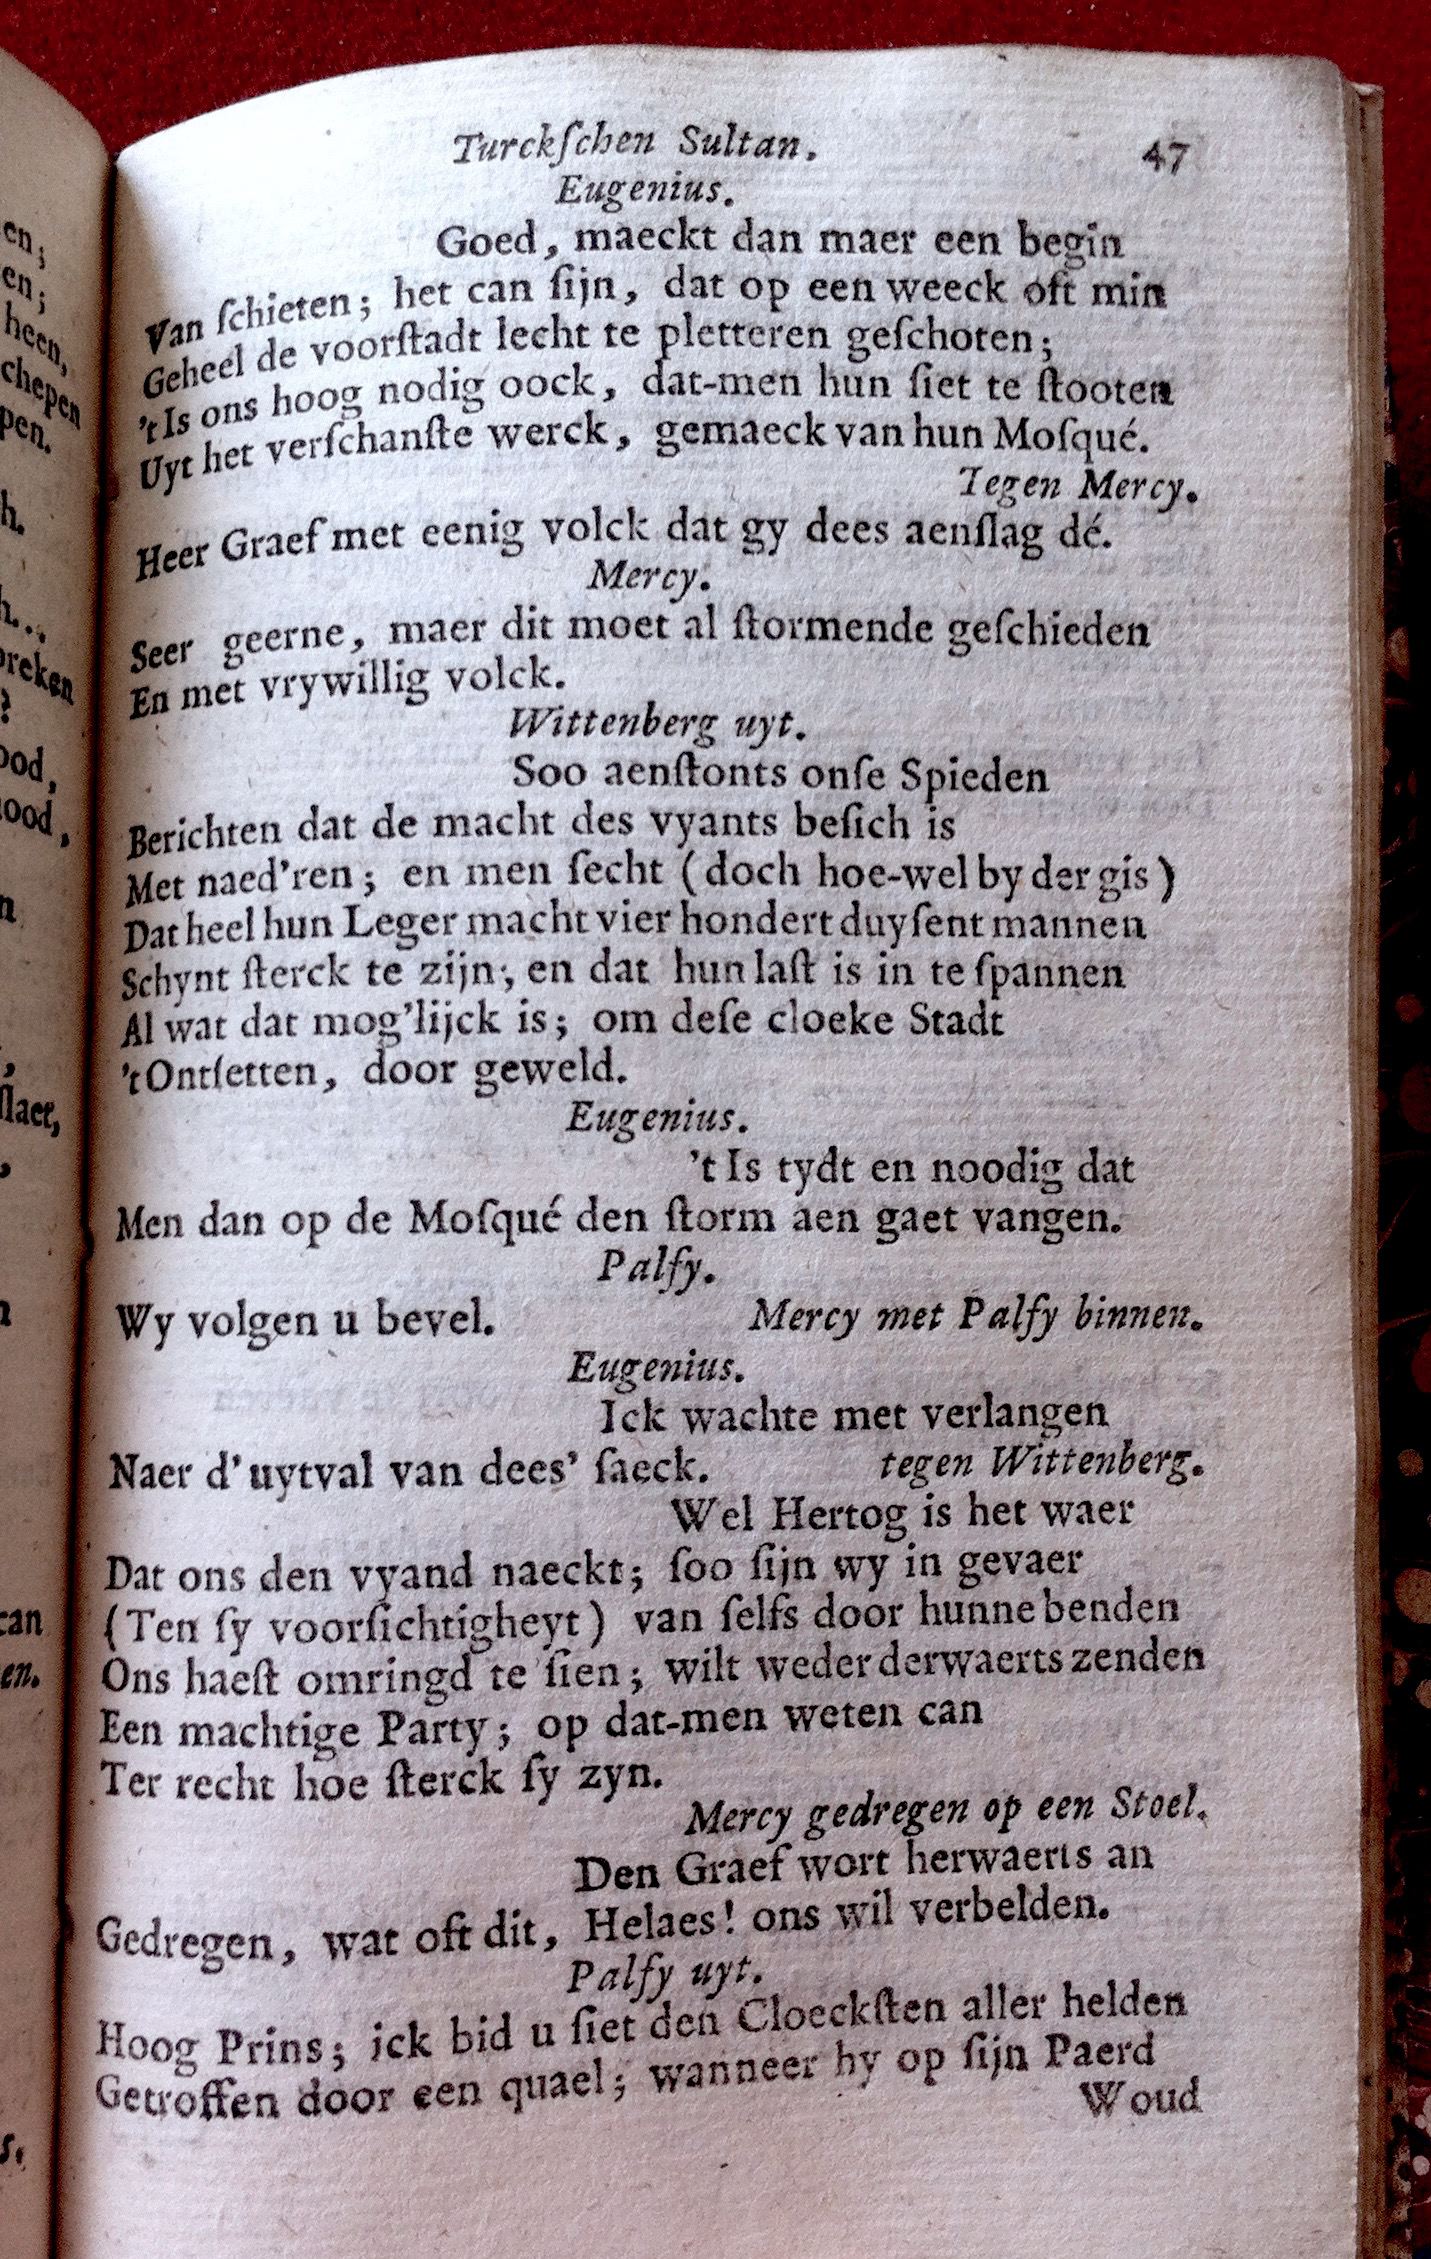 Turckſchen Sultan. 47
Eugenius.
Goed, maeckt dan maer een begin
Van ſchieten; het can ſijn, dat op een weeck oft min
Geheel de voorſtadt lecht te pletteren geſchoten;
't Is ons hoog nodig oock, dat-men hun ſiet te ſtooten
Uyt het verſchanſte werck, gemaeck van hun Moſqué.
Tegen Mercy.
Heer Graef met eenig volck dat gy dees aenſlag dé.
Mercy.
Seer geerne, maer dit moet al ſtormende geſchieden
En met vrywillig volck.
Wittenberg uyt.
Soo aenſtonts onſe Spieden
Berichten dat de macht des vyants beſich is
Met naed'ren; en men ſecht (doch hoe-wel by der gis)
Dat heel hun Leger macht vier hondert duyſent mannen
Schynt ſterck te zijn, en dat hun laſt is in te ſpannen
Al wat dat mog'lijck is; om deſe cloeke Stadt
't Ontſetten, door geweld.
Eugenius.
't Is tydt en noodig dat
Men dan op de Moſqué den ſtorm aen gaet vangen.
Palfy.
Wy volgen u bevel. Mercy met Palfy binnen.
Eugenius.
Ick wachte met verlangen
Naer d'uytval van dees' ſaeck. tegen Wittenberg.
Wel Hertog is het waer
Dat ons den vyand naeckt; ſoo ſijn wy in gevaer
(Ten ſy voorſichtigheyt) van ſelfs door hunne benden
Ons haeſt omringd te ſien; wilt weder derwaerts zenden
Een machtige Party; op dat-men weten can
Ter recht hoe ſterck ſy zyn.
Mercy gedregen op een Stoel.
Den Graef wort herwaerts an
Gedregen, wat oft dit, Helaes! ons wil verbelden.
Palfy uyt.
Hoog Prins; ick bid u ſiet den Cloeckſten aller helden
Getroffen door een quael; wanneer hy op ſijn Paerd
Woud